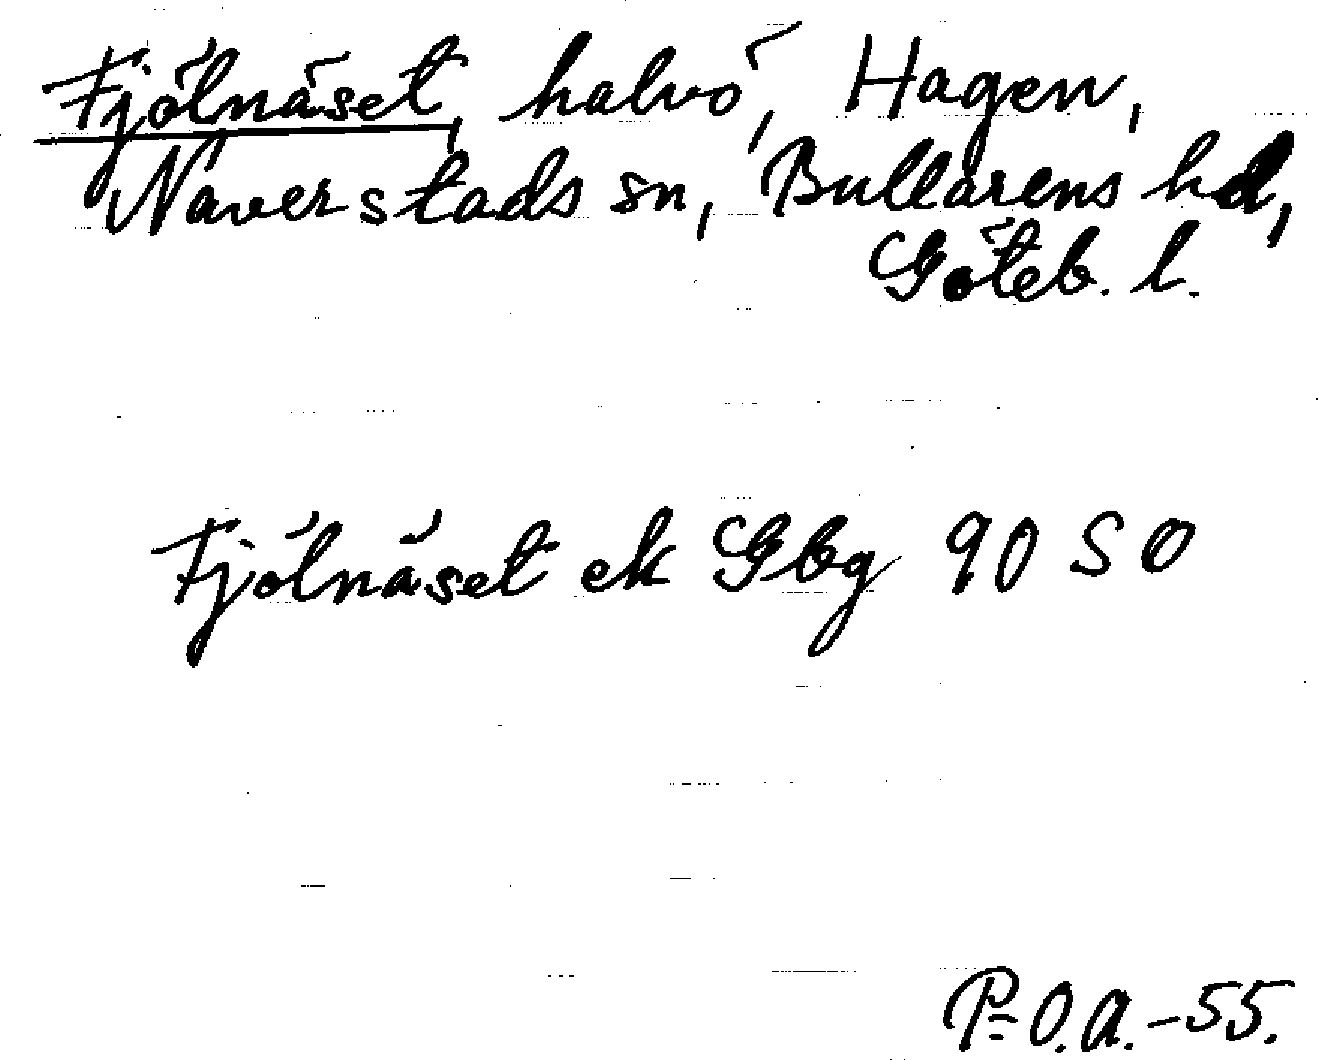 Fjölnäset, halvö, Hagen,
Naverstads sn, Bullarens hd,
Göteb. l.
Fjölnäset ek Gbg 90 SO
P-O.A.-55.